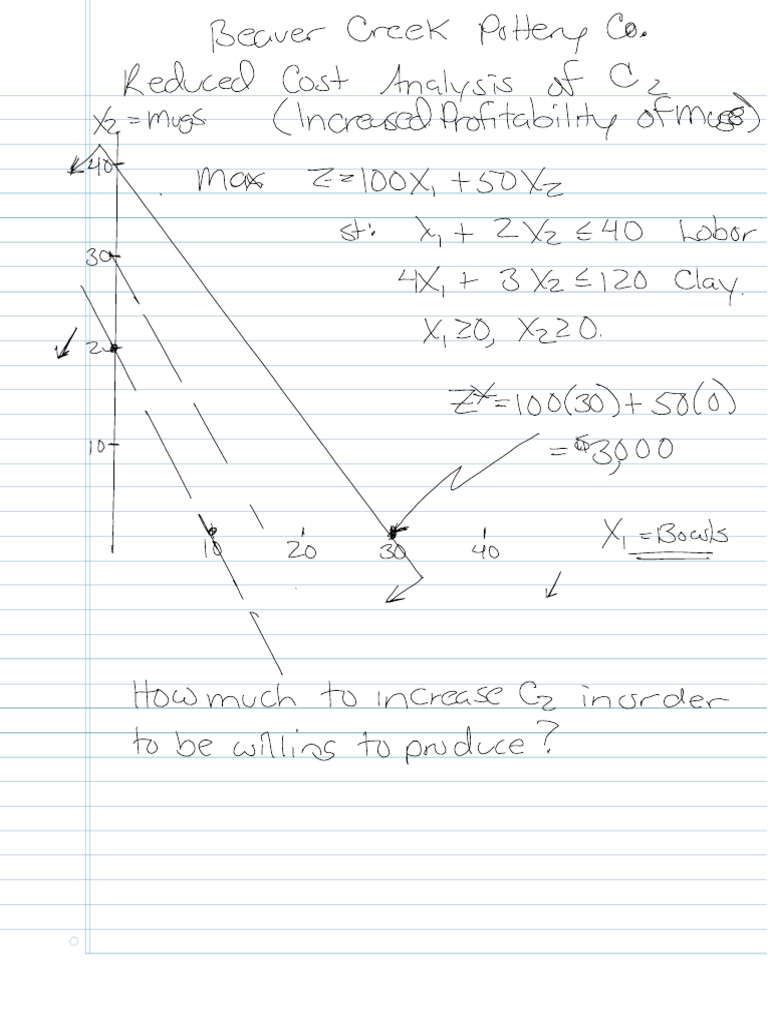 Beaver Creek Pottery Co.
Reduced Cost Analysis of C2
(Increased Profitability of Mugs)
X2 = mugs
40
30
20
10
max Z = 100X1 + 50X2
st: X1 + 2X2 ≤ 40 Labor
4X1 + 3X2 ≤ 120 Clay.
X1 ≥ 0, X2 ≥ 0.
Z* = 100(30) + 50(0)
= $3,000
10 20 30 40
X1 = Bowls
How much to increase C2 inorder
to be willing to produce?